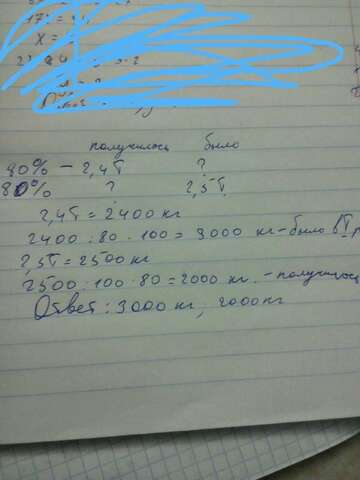 получилось было
80% - 2,4т ?
80% ? 2,5т
2,4т = 2400 кг
2400 : 80 · 100 = 3000 кг - было
2,5т = 2500 кг
2500 : 100 · 80 = 2000 кг. - получилось
Ответ : 3000 кг, 2000 кг